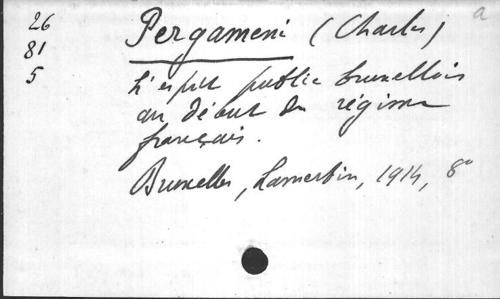 a
26
81
5
Pergameni (Charles)
L'esprit public bruxellois
au début du régime
français.
Bruxelles, Lamertin, 1914, 8°